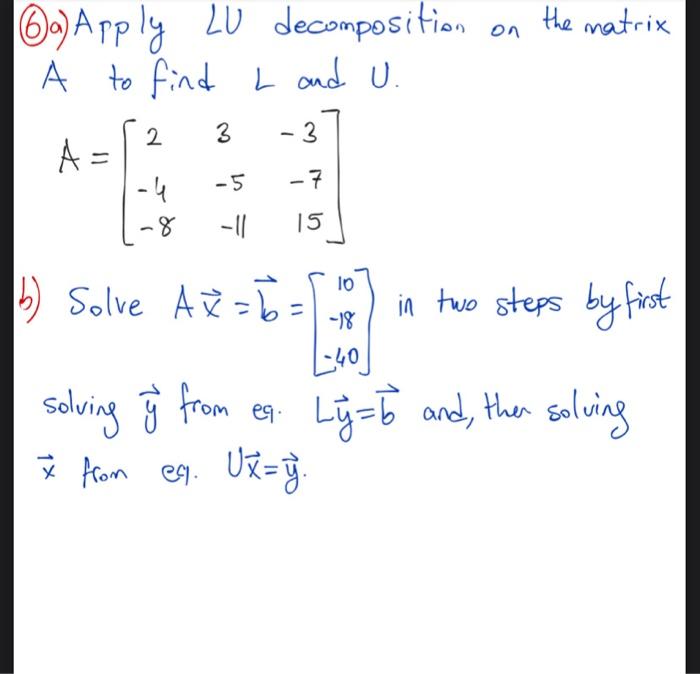 6 a) Apply LU decomposition on the matrix
A to find L and U.
A = [2 3 -3
-4 -5 -7
-8 -11 15]
b) Solve Ax⃗ = b⃗ = [10
-18
-40] in two steps by first
solving y⃗ from eq. Ly⃗=b⃗ and, then solving
x⃗ from eq. Ux⃗=y⃗.